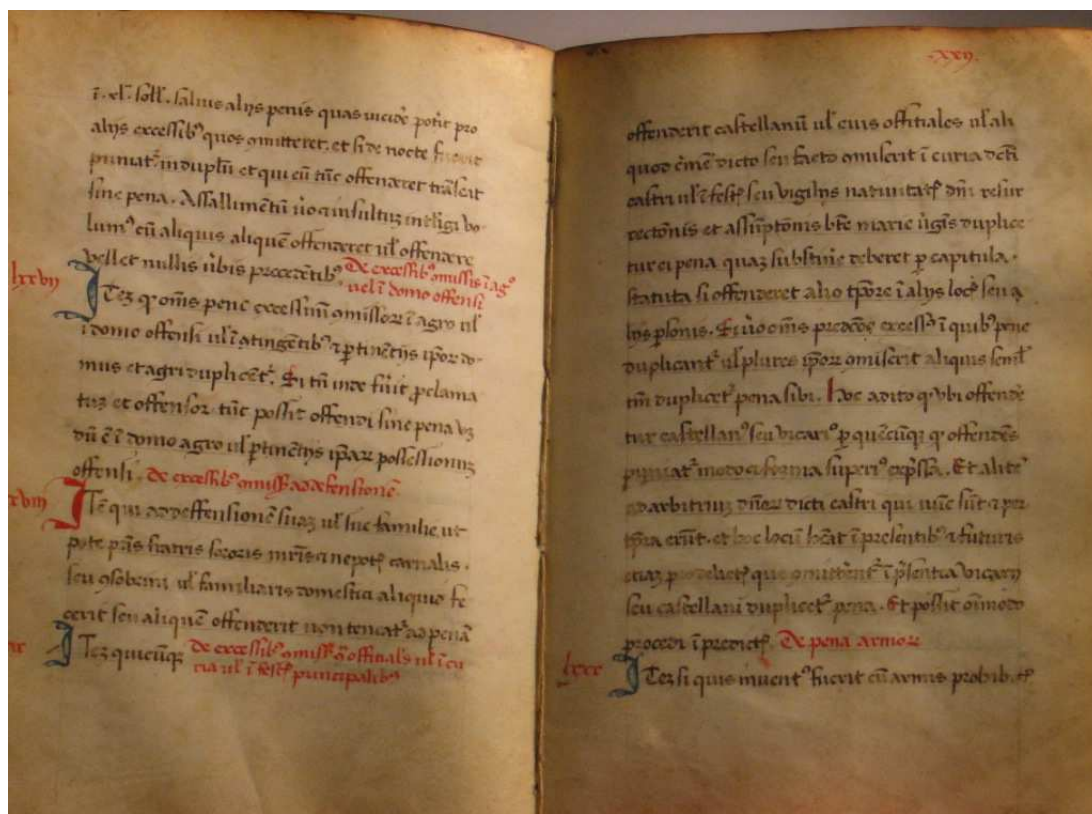 ī. xl. soll̄. salvus alijs penis quas incidē potīt pro
alijs excessib⁹ quos ꝯmitteret. et si de nocte fuerit
puniat᷑ in duplū et qui eū tūc offenderet trāseat
sine pena. Assallimentū v̄o ⁊ insultuz intelligi vo
lum⁹ cū aliquis aliquē offenderet ul̄ offendere
vellet nullis v̄bis precedētib⁹ De excessib⁹ ꝯmissis ī ag⁰
vel ī domo offensi
lxxvij
ITez ꝙ om̄s pene excessuū ꝯmissoꝝ ī agro ul̄
ī domo offensi ul̄ ī atingētib⁹ ⁊ ꝑtinētijs ipoꝝ do
mus et agri duplicēt᷑. Et si tn̄ inde fūit proclama
tuz et offensor tūc possit offendi sine pena
dū ē ī domo agro ul̄ ꝑtinētijs ipaꝝ possessionuz
offensi. De excessib⁹ ꝯmiss̄ ad defensionē
xviij
ITē qui ad deffensionē suaz ul̄ sue familie ut
pote pr̄is fratris sororis mr̄is ⁊ nepotꝭ carnalis.
seu ꝯsobrini ul̄ familiaris domestici aliquid fe
cerit seu aliquē offenderit non teneat᷑ ad penā
ITez quicūqꝫ De excessib⁹ ꝯmiss̄ ꝯ̄ offitialꝭ ul̄ ī cu
ria ul̄ ī festꝭ principalib⁹
xxij
offenderit castellanū ul̄ eius offitiales ul̄ ali
quod c̄mē dicto seu facto ꝯmiserit ī curia dc̄ti
castri ul̄ ī festꝭ seu vigilijs nativitatꝭ dn̄i resur
rectōnis et assūptōnis bt̄e marie v̄gīs duplice
tur ei pena quaz substinē deberet ꝑ capitula.
statuta si offenderet alio tp̄ore ī alijs locꝭ seu a
lijs ꝑsonis. Et si v̄o om̄s predc̄os excess⁹ ī quib⁹ pene
duplicant᷑ ul̄ plures ipoꝝ ꝯmiserit aliquis semł
tm̄ duplicet᷑ pena sibi. Hoc adito ꝙ ubi offende
tur castellan⁹ seu vicari⁹ ꝑ quēcūqꝫ ꝙ offendēs
puniat᷑ modo ⁊ forma superi⁹ exp̄ssa. Et alite᷑
ad arbitriuz dn̄oꝝ dicti castri qui nūc sūt ⁊ per
tꝑa erūt. et hoc locū hēat ī presentib⁹ ⁊ futuris
etiaz pro delictꝭ que ꝯmittēt᷑ ī p̄sentia vicarij
seu castellani duplicet᷑ pena. Et possit oīmodo
procedi ī predictꝭ. De pena armoꝝ
lxxx
ITez si quis invent⁹ fuerit cū armis prohib.tꝭ